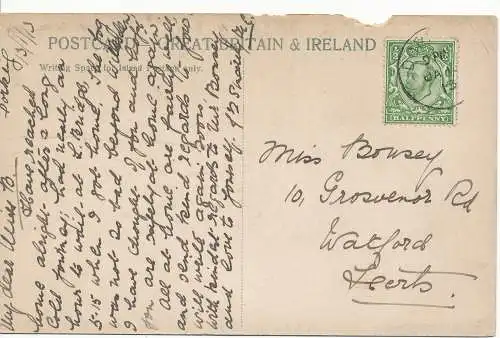 POSTCARD - GREAT BRITAIN & IRELAND
Writing Space for Inland Postage only.
HALFPENNY
Miss Bousey
10, Grosvenor Rd
Watford
Herts.
My dear Miss B.
I have reached
home alright after a long
cold journey. had nearly an
hour to wait at
5-15 when I got home.
was not so bad beyond
I have thought of you and
you are safely at home now
all at home are fairly well
and send kind regards
will write again soon
with kindest regards to Mrs Bousey
and love to yourself.